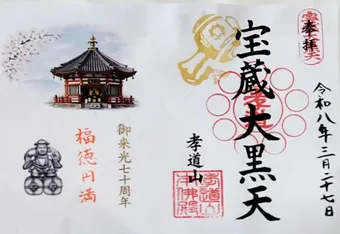 奉拝
令和八年三月二十七日
宝蔵大黒天
孝道山
孝道山
本佛殿
御来光七十周年
福徳円満